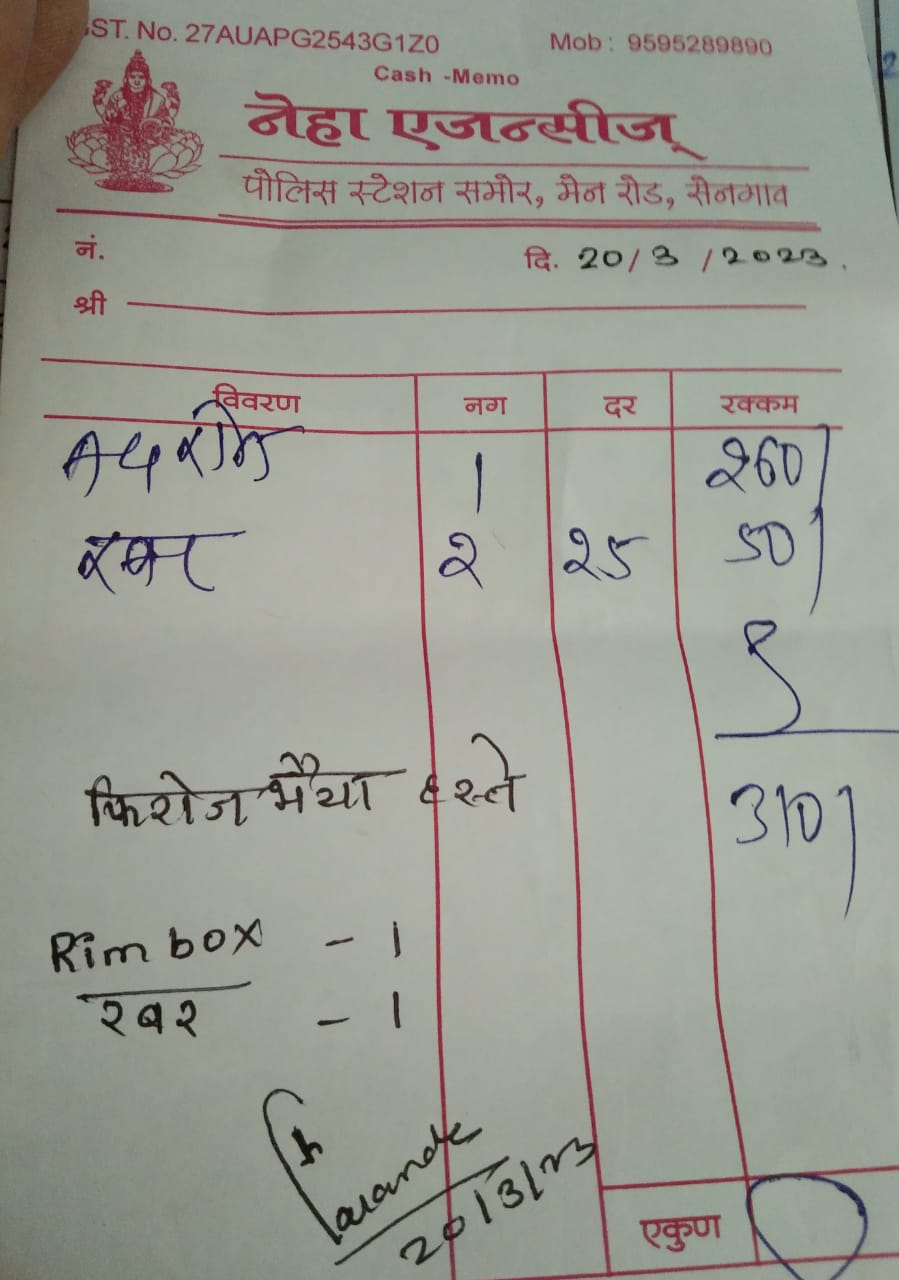 ST. No. 27AUAPG2543G1Z0 Mob : 9595289890
Cash -Memo
नेहा एजन्सीज्
पोलिस स्टेशन समोर, मेन रोड, सेनगाव
नं. दि. 20/3/2023.
श्री
विवरण नग दर रक्कम
A4 रीम 1 260/
रबर 2 25 50/
फिरोज भैया हस्ते 310/
Rim box - 1
रबर - 1
20/3/23
एकुण